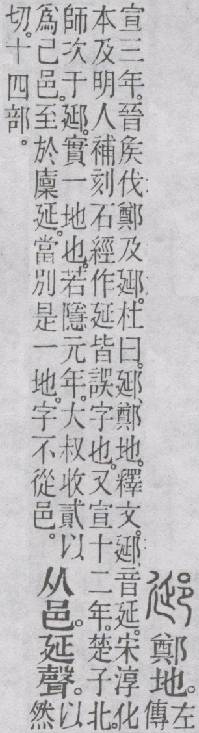 鄭地。左傳
宣三年。晉矦伐鄭及郔。杜曰。郔、鄭地。釋文。郔音延。宋淳化
本及明人補刻石經作延皆誤字也。又宣十二年。楚子北
師次于郔。實一地也。若隱元年。大叔收貳以
爲己邑。至於廩延。當別是一地。字不從邑。
从邑。延聲。以然
切。十四部。